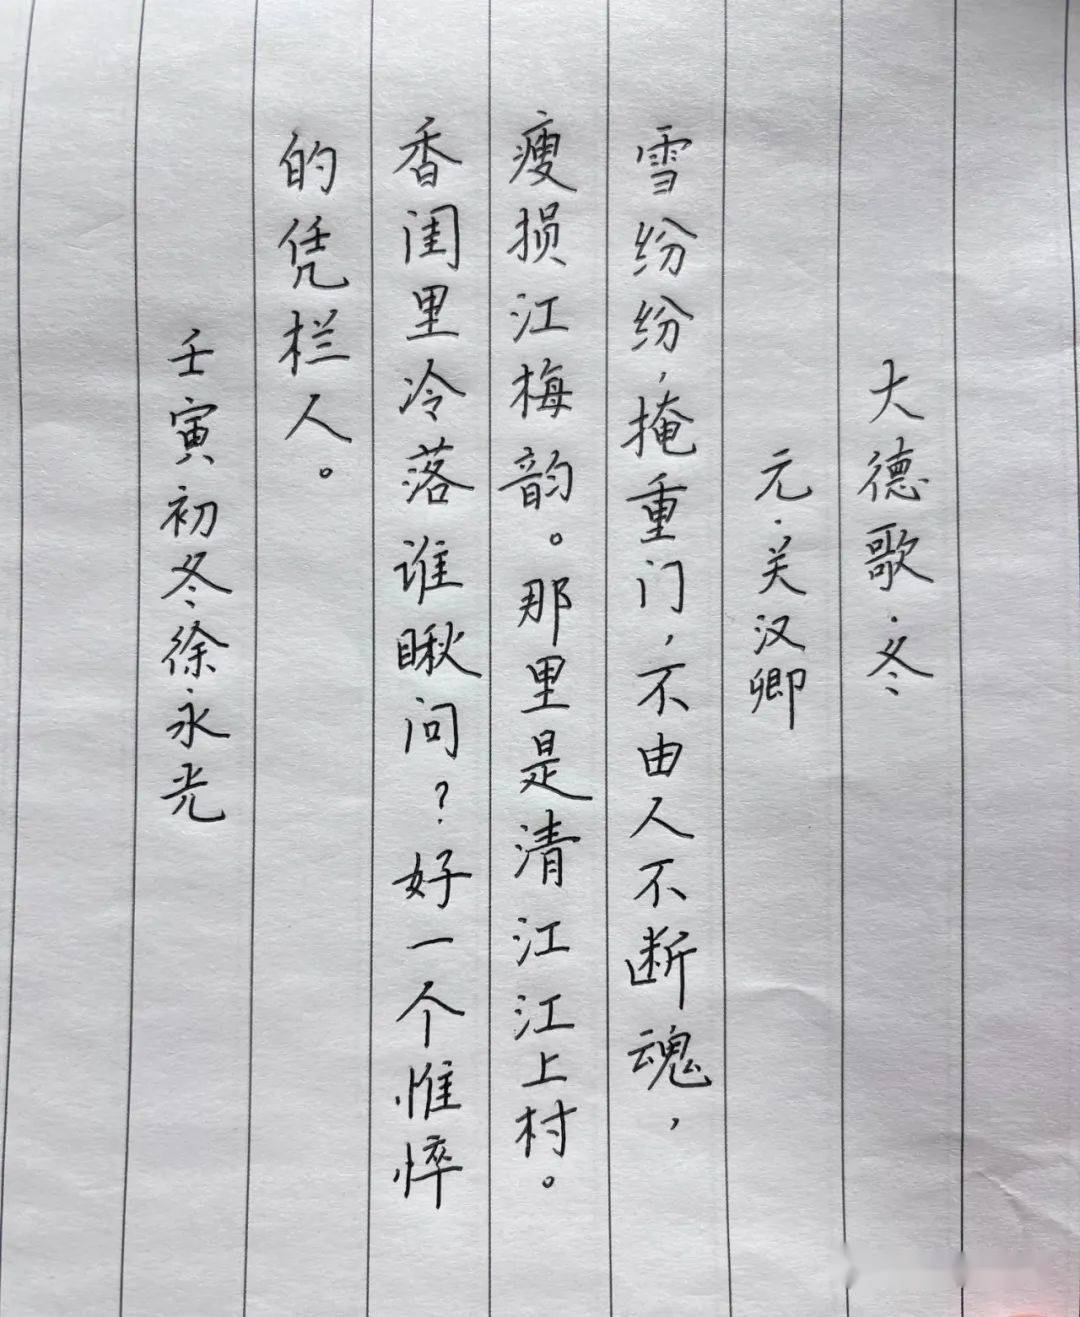 大德歌·冬
元·关汉卿
雪纷纷,掩重门,不由人不断魂,
瘦损江梅韵。那里是清江江上村。
香闺里冷落谁瞅问?好一个惟悴
的凭栏人。
壬寅初冬徐永光